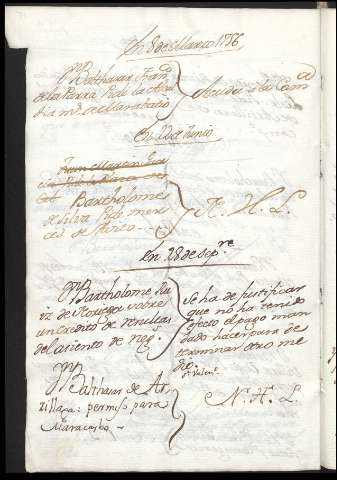 En 8 de Marzo 1756
Dn. Balthasar Fran.co
de la Parra Pide la
dia md. de Marabatio
Acuda a la Cam.a
En 22 de Junio
Bartholome
de Silva Pide mer-
ced de
N. H. L.
En 28 de Sep.re
Dn. Bartholome Ru-
iz de sobre
un Credito de rencillas
del asiento de neg.s
Se ha de justificar
que no ha tenido
efecto el pago man
dado hacer para de
terminar otro me
dio.
Dn. Balthasar de Ar-
zillaga: permiso para
Maracaibo -
N. H. L.